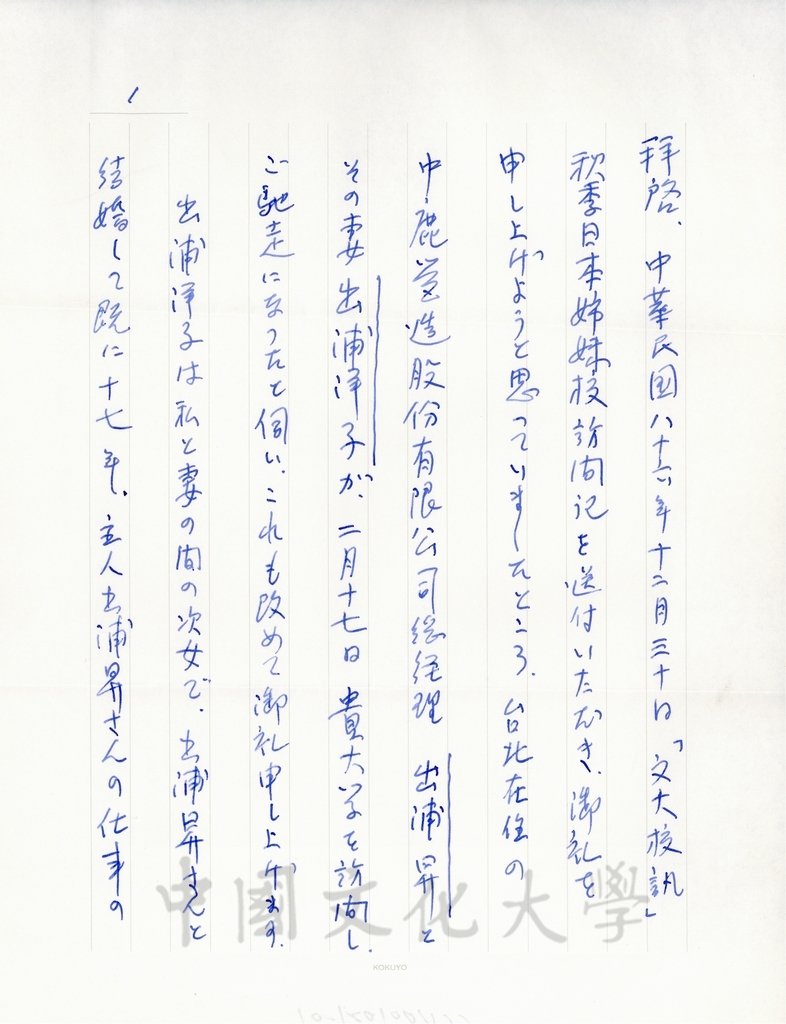 1
拝啓、中華民国八十六年十二月三十日「文大校訊」
秋季日本姉妹校訪問記を送付いただき、御礼を
申し上げようと思っていましたところ、台北在住の
中鹿営造股份有限公司総経理 出浦昇と
その妻出浦洋子が、二月十七日 貴大学を訪問し、
ご馳走になったと伺い、これも改めて御礼申し上げます。
出浦洋子は私と妻の間の次女で、出浦昇さんと
結婚して既に十七年、主人出浦昇さんの仕事の
中國文化大學
KOKUYO